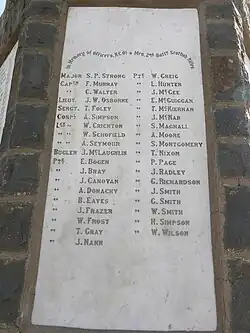 In Memory of Officers, N.C.Os & Men, 2nd Battn Scottish Rifles
MAJOR S. P. STRONG PTE W. GREIG
CAPTN F. MURRAY " L. HUNTER
" C. WALTER " J. McGEE
LIEUT. J. W. OSBORNE " E. McGUIGGAN
SERGT. T. FOLEY " T. McKIERNAN
CORPL A. SIMPSON " J. McNAB
" W. CRICHTON " S. MAGNALL
" W. SCHOFIELD " A. MOORE
" A. SEYMOUR " S. MONTGOMERY
BUGLER J. McLAUGHLIN " T. NIXON
PTE E. BOGEN " P. PAGE
" J. BRAY " J. RADLEY
" J. CANOVAN " G. RICHARDSON
" A. DONACHY " J. SMITH
" B. EAVES " G. SMITH
" J. FRAZER " W. SMITH
" W. FROST " H. SIMPSON
" T. GRAY " W. WILSON
" J. HANN